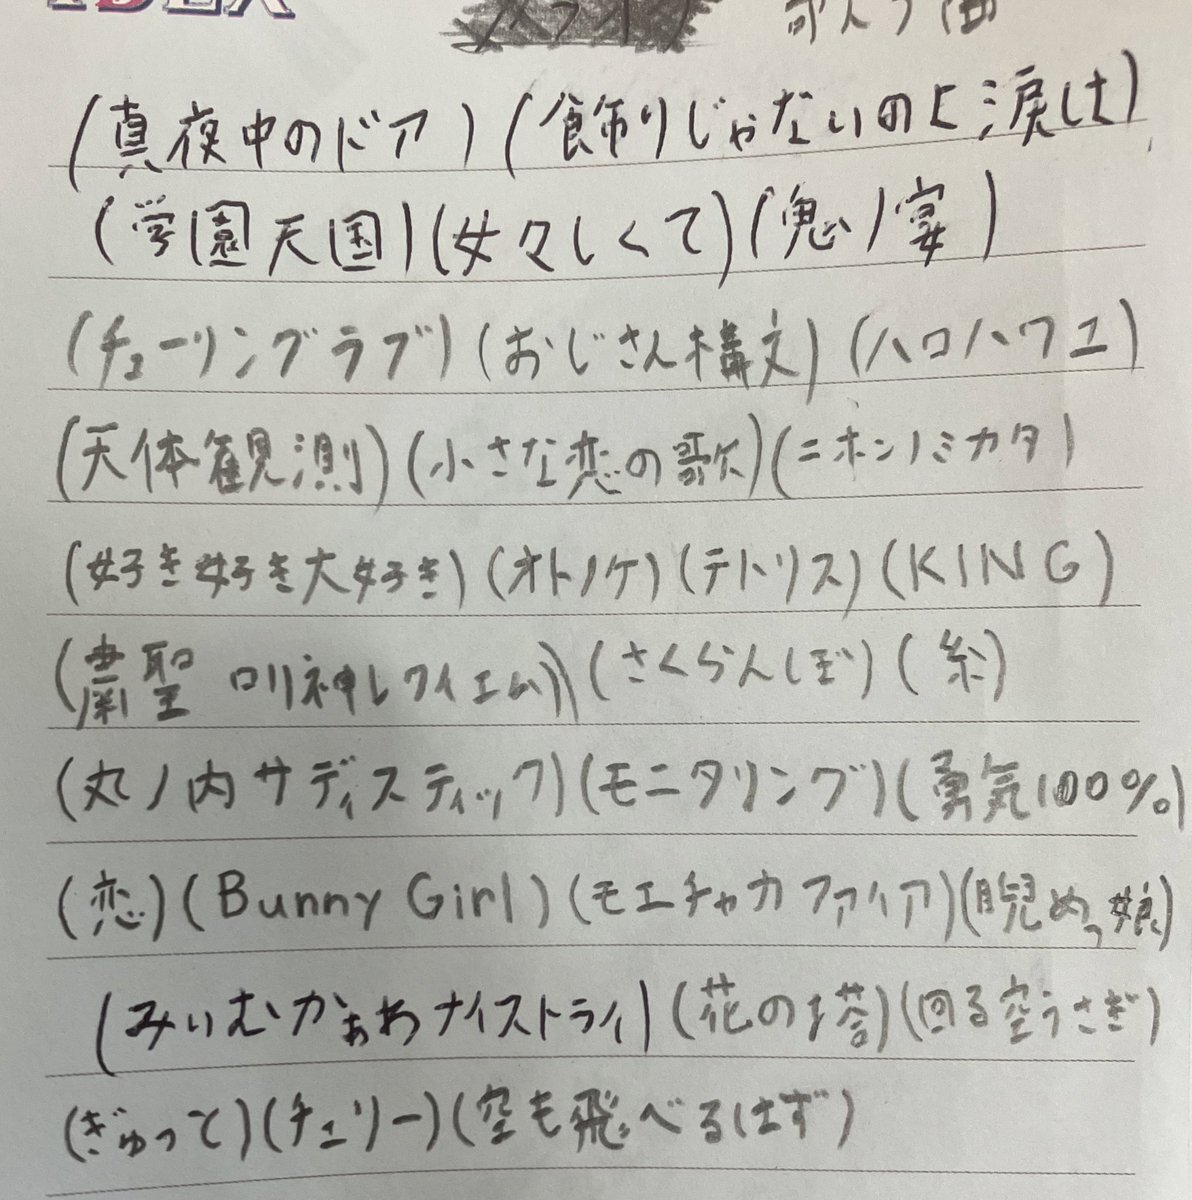 IDEA
歌える曲
(真夜中のドア)(飾りじゃないのよ涙は)
(学園天国)(女々しくて)(鬼ノ宴)
(チューリングラブ)(おじさん構文)(ハロハワユ)
(天体観測)(小さな恋の歌)(ニホンノミカタ)
(好き好き大好き)(オトノケ)(テトリス)(KING)
(粛聖 ロリ神レクイエム)(さくらんぼ)(糸)
(丸ノ内サディスティック)(モニタリング)(勇気100%)
(恋)(Bunny Girl)(モエチャカファイア)(兎めっ娘)
(みぃむかぁぁわナイストライ)(花の塔)(回る空うさぎ)
(ぎゅっと)(チェリー)(空も飛べるはず)